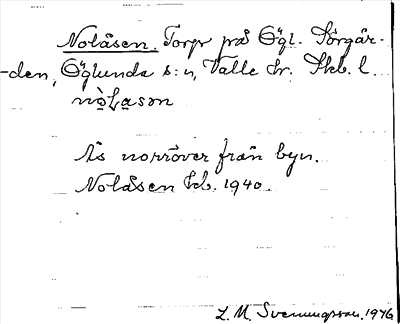 Nolåsen. Torp på Ögl. Sörgår-
-den, Öglunda s:n, Valle hr. Skb. l.
nò̱Låsɘn
Ås norröver från byn.
Nolåsen Ekb. 1940.
L. M. Svenungsson. 1976